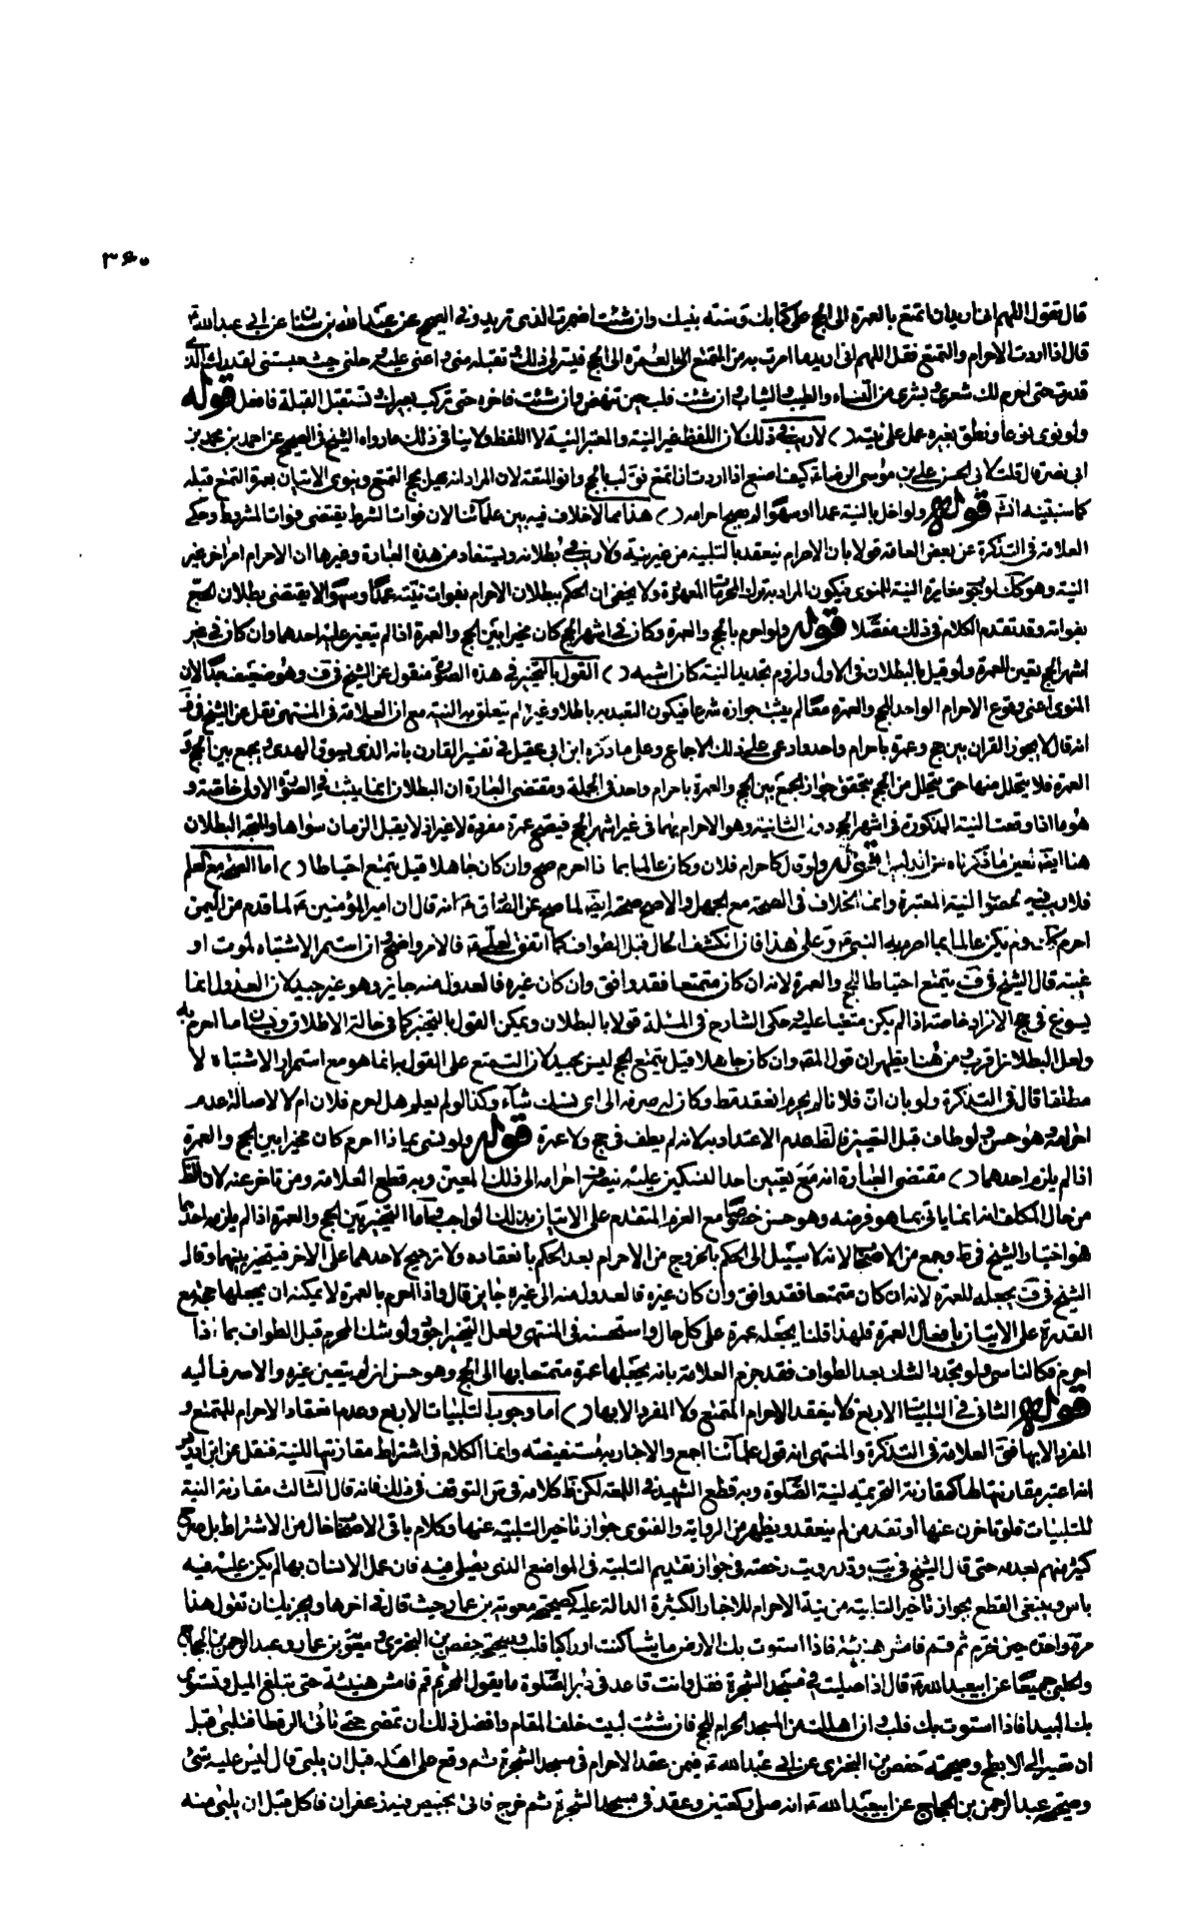 ٣٤٠
قال تقول اللهم انى اريد ان اتمتع بالعمرة الى الحج على كتابك وسنة نبيك وان شئت اضمرت الذى تريد وفى الصحيح عن عبد الله بن سنان عن ابى عبد الله ع
قال اذا اردت الاحرام والتمتع فقل اللهم انى اريد ما امرت به من التمتع بالعمرة الى الحج فيسر لى ذلك وتقبله منى واعنى عليه وحلنى حيث حبستنى لقدرك الذى
قدرت على احرم لك شعرى وبشرى من النساء والطيب والثياب وان شئت فلب حين تنهض وان شئت فاخره حتى تركب بعيرك وتستقبل القبلة فافعل قوله
ولو نوى نوعا ونطق بغيره عمل على نيته ( ) لا ريب فى ذلك لان اللفظ غير النية والمعتبر النية لا اللفظ ولا ينافى ذلك ما رواه الشيخ فى الصحيح عن احمد بن محمد بن
ابى نصر قال قلت لابى الحسن على بن موسى الرضا ع كيف اصنع اذا اردت ان اتمتع فق لب بالحج وانو المتعة لان المراد انه يهل بحج التمتع وينوى الاتيان بعمرة التمتع قبله
كما سنبينه انش قوله ولو اخل بالنية عمدا او سهوا لم يصح احرامه ( ) هذا مما لا خلاف فيه بين علمائنا لان فوات الشرط يقتضى فوات المشروط وحكى
العلامة فى التذكرة عن بعض العامة قولا بان الاحرام ينعقد بالتلبية من غير نية ولا ريب فى بطلانه ويستفاد من هذه العبارة وغيرها ان الاحرام امر اخر غير
النية وهو كك لوجوب مغايرة النية للمنوى فيكون المراد به ترك المحرمات المعهودة ولا يخفى ان الحكم ببطلان الاحرام بفوات نيته عمدا وسهوا لا يقتضى بطلان الحج
بفواته وقد تقدم الكلام فى ذلك مفصلا قوله ولو احرم بالحج والعمرة وكان فى اشهر الحج كان مخيرا بين الحج والعمرة اذا لم يتعين عليه احدهما وان كان فى غير
اشهر الحج تعين للعمرة ولو قيل بالبطلان فى الاول ولزوم تجديد النية كان اشبه ( ) القول بالتخيير فى هذه الصورة منقول عن الشيخ فى ف وهو ضعيف جدا لان
المنوى اعنى وقوع الاحرام الواحد للحج والعمرة معا لم يثبت جوازه شرعا فيكون التعبد به باطلا وغيره لم يتعلق به النية مع ان العلامة فى المنتهى نقل عن الشيخ فى ف
انه قال لا يجوز القران بين حج وعمرة باحرام واحد وادعى على ذلك الاجماع وعلى ما ذكره ابن ابى عقيل فى تفسير القارن بانه الذى يسوق الهدى ويجمع بين الحج و
العمرة فلا يتحلل منها حتى يتحلل من الحج يتحقق جواز الجمع بين الحج والعمرة باحرام واحد فى الجملة ومقتضى العبارة ان البطلان انما يثبت فى الصورة الاولى خاصة و
هو ما اذا وقعت النية المذكورة فى اشهر الحج دون الثانية وهو الاحرام بهما فى غير اشهر الحج فيصح عمرة مفردة لا غير اذ لا يقبل الزمان سواها والمتجه البطلان
هنا ايضا بعين ما ذكرناه من الدليل قوله ولو قال كاحرام فلان وكان عالما بما ذا احرم صح وان كان جاهلا قيل يتمتع احتياطا ( ) اما الصحة مع العلم
فلا ريب فيه لحصول النية المعتبرة وانما الخلاف فى الصحة مع الجهل والاصح صحته ايضا لما صح عن الصادق ع انه قال ان امير المؤمنين ع لما قدم من اليمن
احرم كك ولم يكن عالما بما احرم به النبى ص وعلى هذا فان انكشف الحال قبل الطواف كما اتفق لعلى ع فالامر واضح وان استمر الاشتباه لموت او
غيبة قال الشيخ فى ف يتمتع احتياطا للحج والعمرة لانه ان كان متمتعا فقد وافق وان كان غيره فالعدول منه جايز وهو غير جيد لان العدول انما
يسوغ فى حج الافراد خاصة اذا لم يكن متعينا عليه وحكى الشارح فى المسئلة قولا بالبطلان ويمكن القول بالتخيير كما فى حالة الاطلاق ونسيان ما احرم به
ولعل البطلان اقرب ومن هنا يظهر ان قول المصنف وان كان جاهلا قيل يتمتع الحج ليس بجيد لان التمتع على القول به انما هو مع استمرار الاشتباه لا
مطلقا قال فى التذكرة ولو بان ان فلانا لم يحرم انعقد مطلقا وكان له صرفه الى اى نسك شآء وكذا لو لم يعلم هل احرم فلان ام لا لاصالة عدم
احرامه وهو حسن ولو طاف قبل التعيين فالظ عدم الاعتداد به لانه لم يطف فى حج ولا عمرة قوله ولو نسى بماذا احرم كان مخيرا بين الحج والعمرة
اذا لم يلزمه احدهما ( ) مقتضى العبارة انه مع تعيين احد النسكين عليه ينصرف احرامه الى ذلك المعين وبه قطع العلامة ومن تاخر عنه لان الظ
من حال المكلف انه انما ياتى بما هو فرضه وهو حسن خصوصا مع العزم المتقدم على الاتيان بذلك الواجب واما التخيير بين الحج والعمرة اذا لم يلزمه احدهما
هو اختيار الشيخ فى ط وجمع من الاصحاب لانه لا سبيل الى الحكم بالخروج من الاحرام بعد الحكم بانعقاده ولا ترجيح لاحدهما على الاخر فيتخير بينهما وقال
الشيخ فى ف يجعله للعمرة لانه ان كان متمتعا فقد وافق وان كان غيره فالعدول منه الى غيره جايز قال واذا احرم بالعمرة لا يمكنه ان يجعلها حجة مع
القدرة على الاتيان بافعال العمرة فلهذا قلنا يجعله عمرة على كل حال واستحسنه فى المنتهى ولعل التخيير اجود ولو شك المحرم قبل الطواف بما ذا
احرم فكالناسى ولو تجدد الشك بعد الطواف فقد جزم العلامة بانه يجعلها عمرة متمتعا بها الى الحج وهو حسن ان لم يتعين غيره والا صرف اليه
قوله الثانى فى التلبيات الاربع فلا ينعقد الاحرام للمتمتع ولا المفرد الا بها ( ) اما وجوب التلبيات الاربع وعدم انعقاد الاحرام للمتمتع و
المفرد الا بها فقال العلامة فى التذكرة والمنتهى انه قول علمآئنا اجمع والاخبار به مستفيضة وانما الكلام فى اشتراط مقارنتها للنية فنقل عن ابن ادريس
انه اعتبر مقارنتها لها كمقارنة التحريمة لنية الصلوة وبه قطع الشهيد فى اللمعة لكن ظ كلامه فى س التوقف فى ذلك فانه قال الثالث مقارنة النية
للتلبيات فلو تاخرن عنها او تقدمن لم ينعقد ويظهر من الرواية والفتوى جواز تاخير التلبية عنها وكلام باقى الاصحاب خال من الاشتراط بل صرح
كثير منهم بعدمه حتى قال الشيخ فى يب وقد رويت رخصة فى جواز تقديم التلبية فى المواضع الذى يصلى فيه فان عمل الانسان بها لم يكن عليه فيه
باس وينبغى القطع بجواز تاخير التلبية عن نية الاحرام للاخبار الكثيرة الدالة عليه كصحيحة معوية بن عمار حيث قال فى اخرها ويجزيك ان تقول هذا
مرة واحدة حين تحرم ثم قم فامش هنيئة فاذا استوت بك الارض ماشيا كنت او راكبا فلب وصحيحة حفص بن البخترى ومعوية بن عمار وعبد الرحمن بن الحجاج
والحلبى جميعا عن ابيعبد الله ع قال اذا صليت فى مسجد الشجرة فقل وانت قاعد فى دبر الصلوة ما يقول المحرم ثم قم فامش هنيئة حتى تبلغ الميل وتستوى
بك البيداء فاذا استوت بك فلب وان اهللت من المسجد الحرام للحج فان شئت لبيت خلف المقام وافضل ذلك ان تمضى حتى تاتى الرقطا فتلبى قبل
ان تصير الى الابطح وصحيحة حفص بن البخترى عن ابى عبد الله ع فيمن عقد الاحرام فى مسجد الشجرة ثم وقع على اهله قبل ان يلبى قال ليس عليه شئ
وصحيحة عبد الرحمن بن الحجاج عن ابيعبد الله ع انه صلى ركعتين وعقد فى مسجد الشجرة ثم خرج فاتى بخبيص فيه زعفران فاكل قبل ان يلبى منه